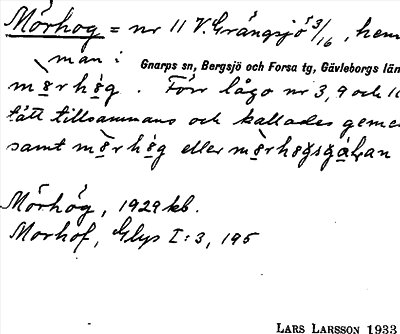 Mörhog = nr 11 V. Grängsjö 3/16, hem
man i Gnarps sn, Bergsjö och Forsa tg, Gävleborgs län
Förr lågo nr 3, 9 och 11
tätt tillsammans och kallades geme
samt eller
Mörhög, 1929 kb.
Morhof, Glys I:3, 195
LARS LARSSON 1933